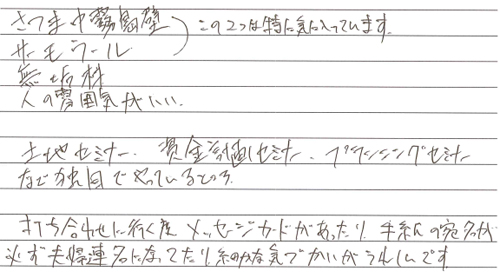 さつま中霧島壁
サーモウール ) この2つは特に気に入っています。
無垢材
人の雰囲気がいい。
土地セミナー、資金計画セミナー、プランニングセミナー
など独自でやっているところ。
打ち合わせに行く度メッセージカードがあったり、手紙の宛名が
必ず夫婦連名になってたり、細かな気づかいがうれしいです